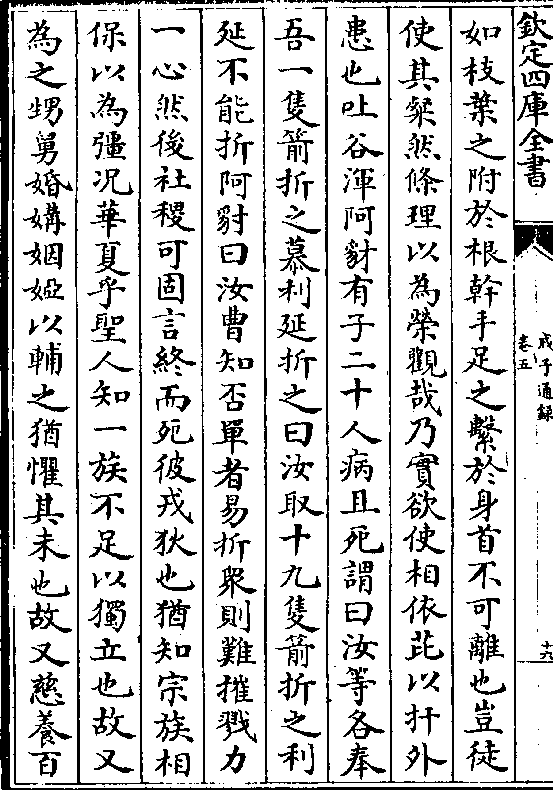 欽定四庫全書
戒子通錄
卷五
十六
如枝葉之附於根幹手足之繫於身首不可離也豈徒
使其粲然條理以為榮觀哉乃實欲使相依芘以扞外
患也吐谷渾阿豺有子二十人病且死謂曰汝等各奉
吾一隻箭折之慕利延折之曰汝取十九隻箭折之利
延不能折阿豺曰汝曹知否單者易折衆則難摧戮力
一心然後社稷可固言終而死彼戎狄也猶知宗族相
保以為彊况華夏乎聖人知一族不足以獨立也故又
為之甥舅婚媾姻婭以輔之猶懼其未也故又慈養百